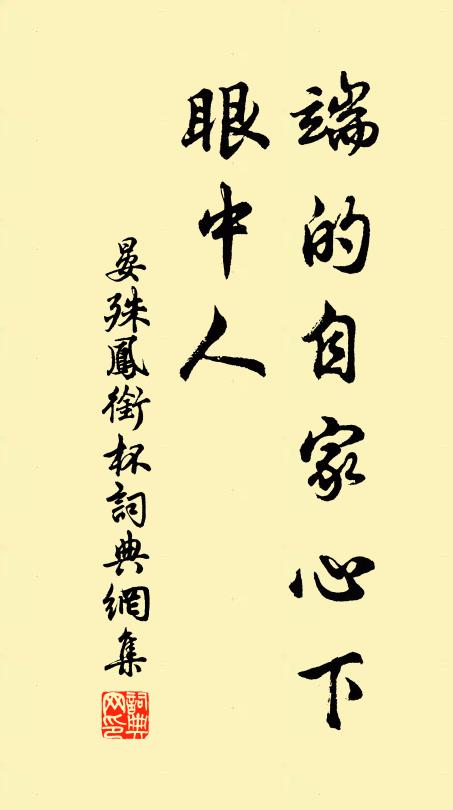 端的自家心下
眼中人
晏殊鳳銜杯詞典網集
詞典網印